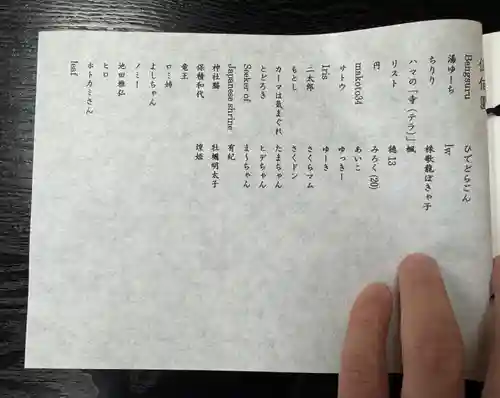 Bengsuru ひでぞらごん
湯ゆーち Jw
ちりり 株歌龍ぼきゃ子
ハマの「寺(テラ)」楓
リスト 德13
円 みろく(20)
makoto34 あいこ
サトウ ゆっきー
Iris ゆーき
二太郎 さくらマム
もとし さくドン
カーマは気まぐれ たまちゃん
とどろき ヒデちゃん
Seeker of ま〜ちゃん
Japanese shrine 有紀
神社勝 牡蠣明太子
保積和代
竜王
ロミ姉
よしちゃん
ノミー
池田雅弘
ヒロ
ホトカミさん
leaf